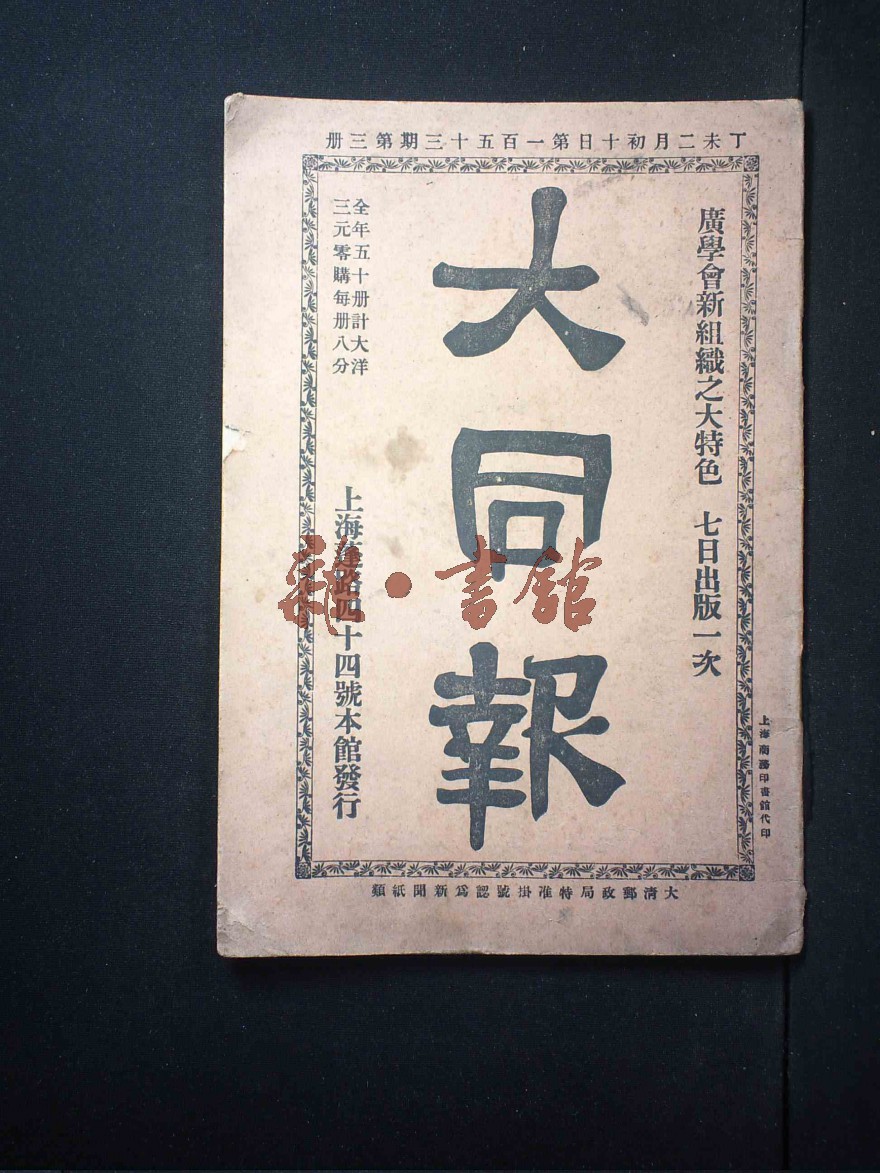 丁未二月初十日第一百五十三期第三册
廣學會新組織之大特色　七日出版一次
大同報
全年五十册計大洋
三元零購每册八分
上海蓬路四十四號本館發行
上海商務印書館代印
大清郵政局特准掛號認爲新聞紙類
雜·書館